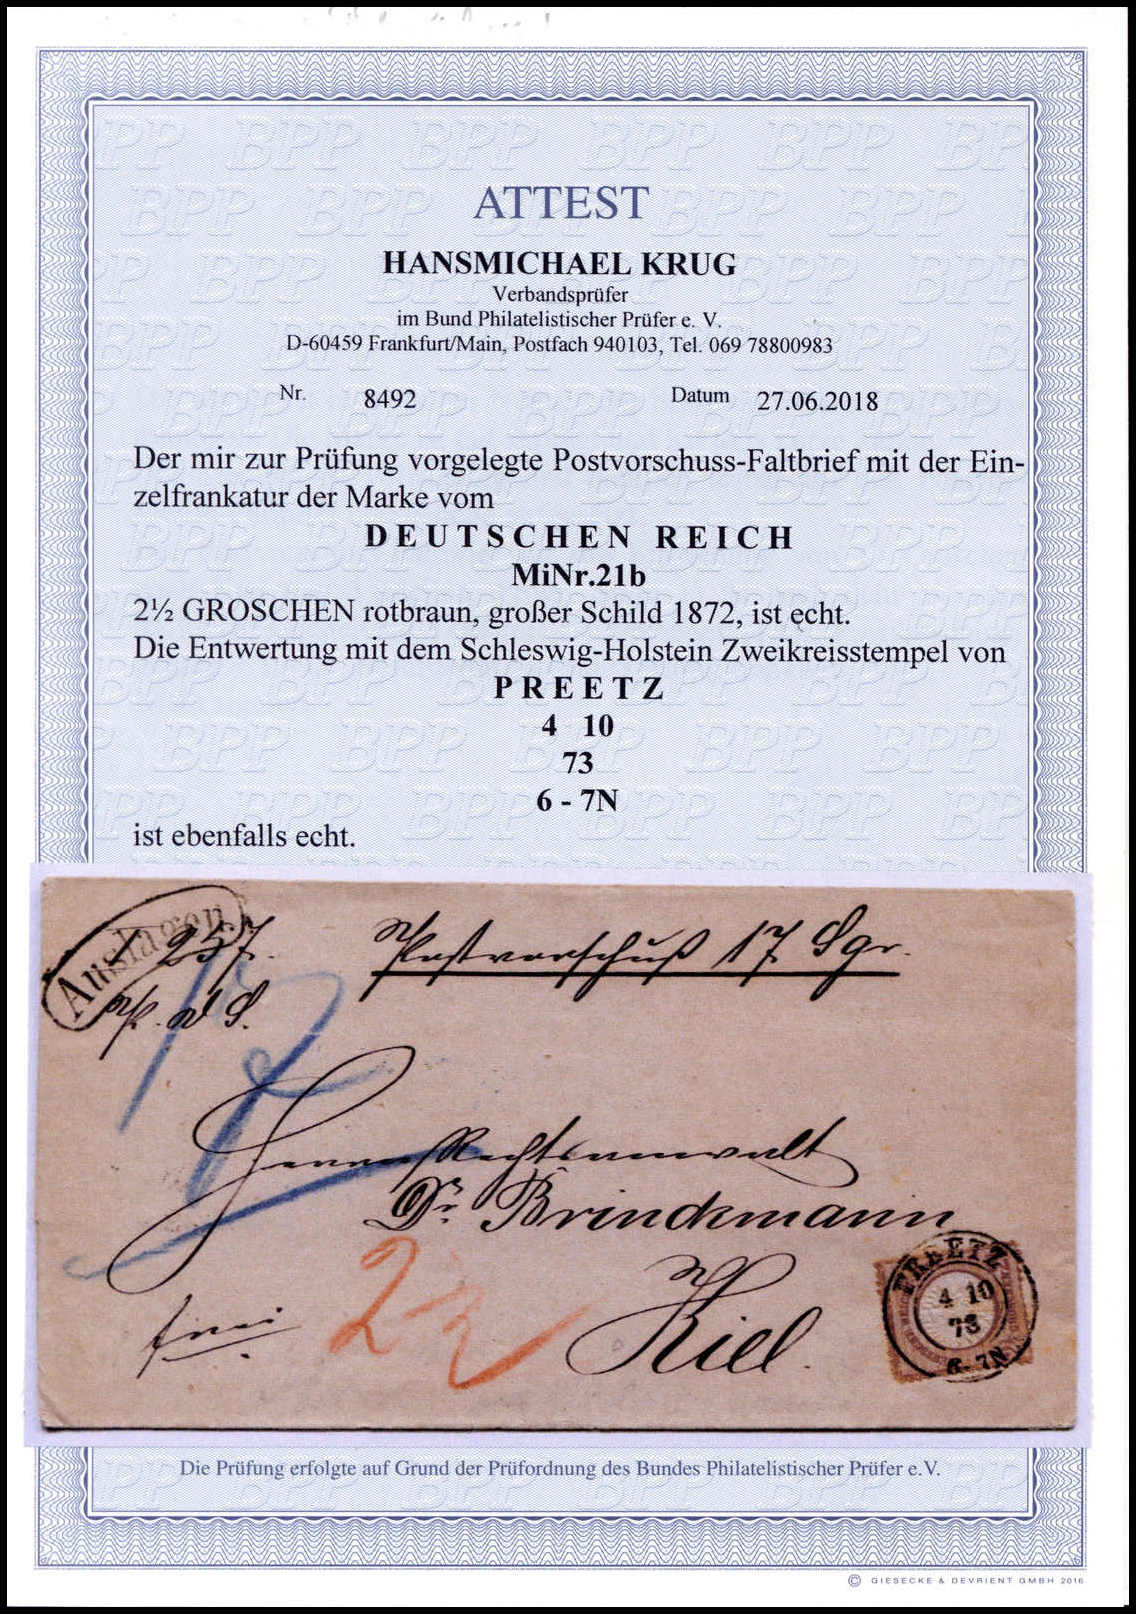 ATTEST
HANSMICHAEL KRUG
Verbandsprüfer
im Bund Philatelistischer Prüfer e. V.
D-60459 Frankfurt/Main, Postfach 940103, Tel. 069 78800983
Nr. 8492 Datum 27.06.2018
Der mir zur Prüfung vorgelegte Postvorschuss-Faltbrief mit der Ein-
zelfrankatur der Marke vom
DEUTSCHEN REICH
MiNr.21b
2½ GROSCHEN rotbraun, großer Schild 1872, ist echt.
Die Entwertung mit dem Schleswig-Holstein Zweikreisstempel von
PREETZ
4 10
73
6 - 7N
ist ebenfalls echt.
Auslagen
257.
Postvorschuß 17 Sgr.
Herrn Rechtsanwalt
Dr. Brinckmann
Kiel.
frei
PREETZ
4 10
73
6-7N
Die Prüfung erfolgte auf Grund der Prüfordnung des Bundes Philatelistischer Prüfer e.V.
© GIESECKE & DEVRIENT GMBH 2016